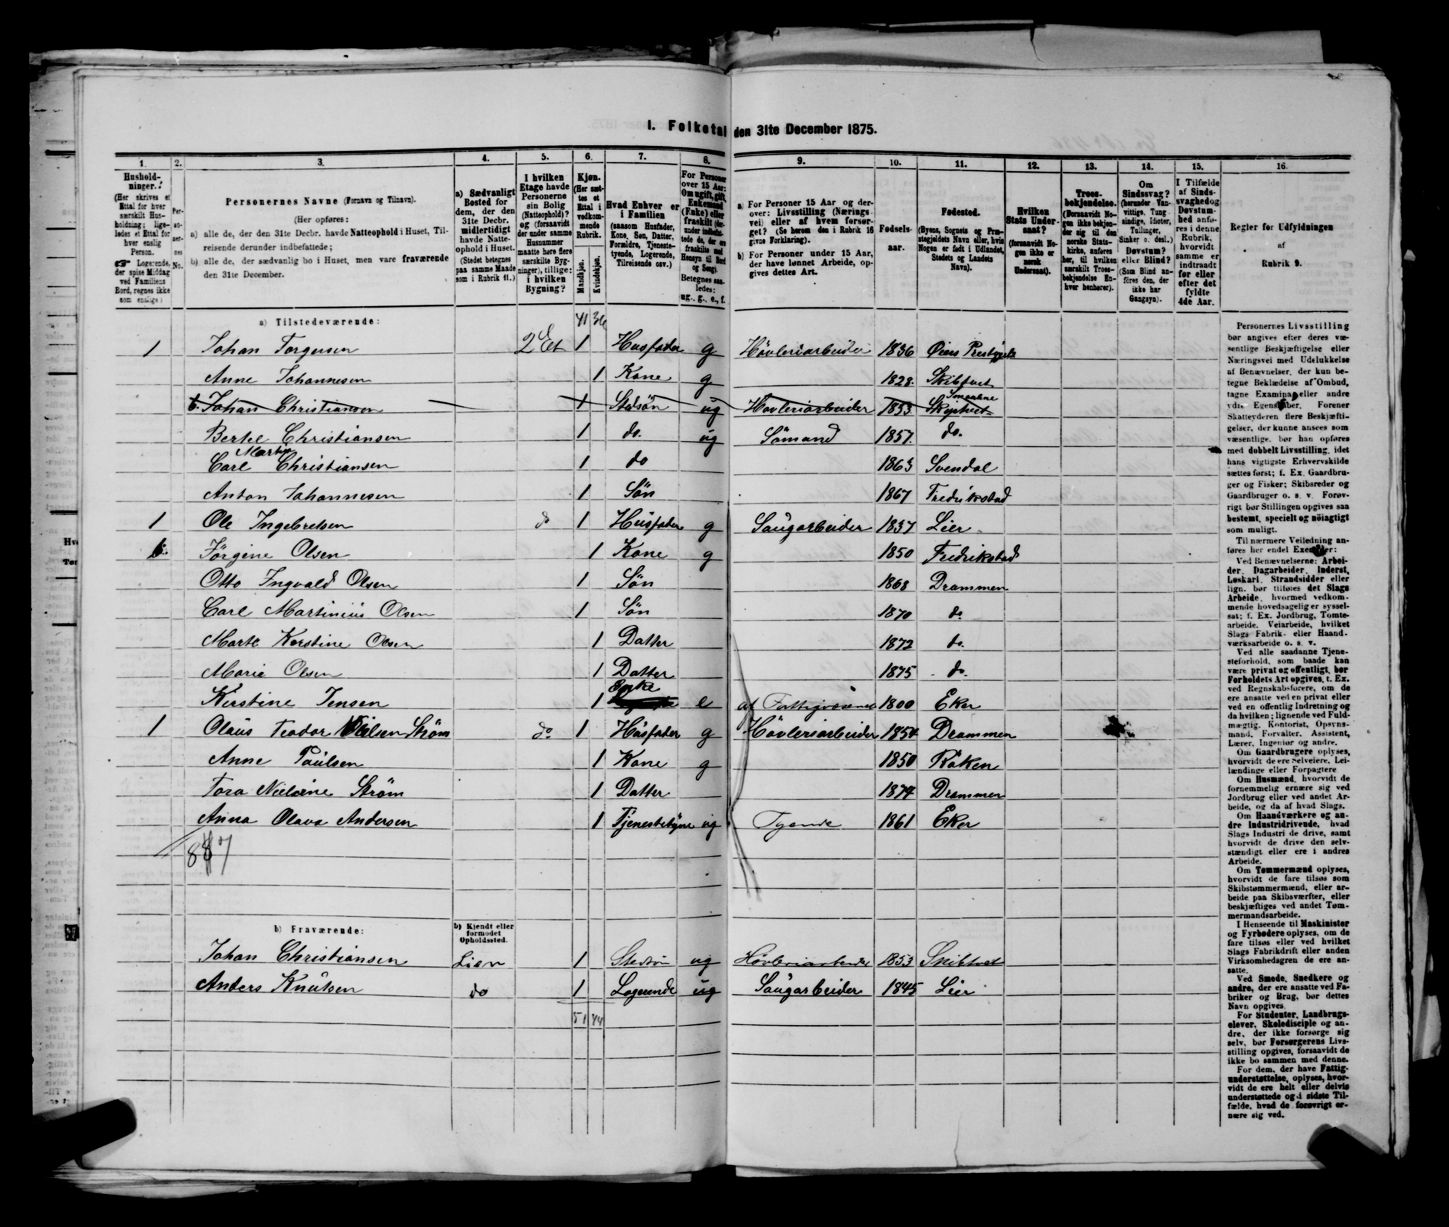 I. Folketal den 31te December 1875.
1. 2. 3. 4. 5. 6. 7. 8. 9. 10. 11. 12. 13. 14. 15. 16.
Husholdninger.
(Her skrives et Ettal for hver særskilt Husholdning; ligeledes et Ettal for hver enslig Person.
Logerende, der spise Middag ved Familiens Bord, regnes ikke som enslige.)
Personernes No.
Personernes Navne (Fornavn og Tilnavn).
(Her opføres:
a) alle de, der den 31te Decbr. havde Natteophold i Huset, Tilreisende derunder indbefattede;
b) alle de, der sædvanlig bo i Huset, men vare fraværende den 31te December.
a) Sædvanligt Bosted for dem, der den 31te Decbr. midlertidigt havde Natteophold i Huset.
(Stedet betegnes paa samme Maade som i Rubrik 11.)
I hvilken Etage havde Personerne sin Bolig (Natteophold)?
og (forsaavidt der under samme Husnummer maatte høre flere særskilte Bygninger), tillige: i hvilken Bygning?
Kjøn.
(Her sættes et Ettal i vedkommende Rubrik.
Mandkjøn.
Kvindekjøn.
Hvad Enhver er i Familien
(saasom Husfader, Kone, Søn, Datter, Forældre, Tjenestetyende, Logerende, Tilreisende osv.)
For Personer over 15 Aar: Om ugift, gift, Enkemand (Enke) eller fraskilt
Betegnes saaledes:
ug., g., e., f.
a) For Personer 15 Aar og derover: Livsstilling (Næringsvei) eller af hvem forsørget? (Se herom den i Rubrik 16 givne Forklaring).
b) For Personer under 15 Aar, der have lønnet Arbeide, opgives dettes Art.
Fødselsaar.
Fødested.
(Byens, Sognets og Præstegjeldets Navn eller, hvis Nogen er født i Udlandet, Stedets og Landets Navn).
Hvilken Stats Undersaat?
(forsaavidt Nogen ikke er norsk Undersaat).
Troesbekjendelse.
(Forsaavidt Nogen ikke bekjender sig til den norske Statskirke, anføres her, til hvilken særskilt Troesbekjendelse Enhver henhører).
Om Sindssvag? (herunder Vanvittige, Tungsindige, Idioter, Tullinger, Sinker o. desl.)
Døvstum? eller Blind?
(Som Blind anføres den, der ikke har Gangsyn).
I Tilfælde af Sindssvaghed og Døvstumhed anføres i denne Rubrik, hvorvidt samme er indtraadt før eller efter det fyldte 4de Aar.
Regler for Udfyldningen
af
Rubrik 9.
a) Tilstedeværende:
1 Johan Torgersen 2 Et 1 Husfader g Høvleriarbeider 1836
Anne Johannesen 1 Kone g 1828 Skibtvet
Johan Christiansen 1 Stedsøn ug Høvleriarbeider 1853
Bertel Christiansen 1 do. ug Sømand 1857. do.
Carl Martin Christiansen 1 do 1863 Svendal
Anton Johannesen 1 Søn 1867 Fredrikstad
1 Ole Ingebretsen do 1 Husfader g Saugarbeider 1837 Lier
Jørgine Olsen 1 Kone g 1850 Fredrikstad
Otto Ingvald Olsen 1 Søn 1868 Drammen
Carl Martinius Olsen 1 Søn 1870 do.
Marte Kerstine Olsen 1 Datter 1872 do.
Marie Olsen 1 Datter 1875 do.
Kerstine Jensen 1 e af Fattigvæsenet 1800 Eker
1 Olaus Teodor Nilsen Strøm do 1 Husfader g Høvleriarbeider 1854 Drammen
Anne Paulsen 1 Kone g 1850 Røken
Tora Nielsine Strøm 1 Datter 1874 Drammen
Anna Olava Andersen 1 Tjenestetyende ug Tyende 1861 Eker
b) Fraværende:
b) Kjendt eller formodet Opholdssted.
Johan Christiansen Lier 1 Stedsøn ug Høvleriarbeider 1853 Skibtvet
Anders Knutsen do 1 Logerende ug Saugarbeider 1845 Lier
Personernes Livsstilling bør angives efter deres væsentlige Beskjæftigelse eller Næringsvei med Udelukkelse af Benævnelser, der kun betegne Beklædelse af Ombud, tagne Examina eller andre ydre Egenskaber. Forener Skatteyderen flere Beskjæftigelser, der kunne ansees som væsentlige, bør han opføres med dobbelt Livsstilling, idet hans vigtigste Erhvervskilde sættes først; f. Ex. Gaardbruger og Fisker; Skibsreder og Gaardbruger o. s. v. Forøvrigt bør Stillingen opgives saa bestemt, specielt og nøiagtigt som muligt.
Til nærmere Veiledning anføres her endel Exempler:
Ved Benævnelserne: Arbeider, Dagarbeider, Inderst, Løskarl, Strandsidder eller lign. bør tilføies det Slags Arbeide, hvormed vedkommende hovedsagelig er sysselsat; f. Ex. Jordbrug, Tomtearbeide, Veiarbeide, hvilket Slags Fabrik- eller Haandværksarbeide o. s. v.
Ved alle saadanne Tjenesteforhold, som baade kan være privat og offentligt, bør Forholdets Art opgives, f. Ex. ved Regnskabsførere, om de ere ansatte ved en privat eller ved en offentlig Indretning og da hvilken; lignende ved Fuldmægtig, Kontorist, Opsynsmand, Forvalter, Assistent, Lærer, Ingeniør og andre.
Om Gaardbrugere oplyses, hvorvidt de ere Selveiere, Leilændinge eller Forpagtere
Om Husmænd, hvorvidt de fornemmelig ernære sig ved Jordbrug eller ved andet Arbeide, og da af hvad Slags.
Om Haandværkere og andre Industridrivende, hvad Slags Industri de drive, samt hvorvidt de drive den selvstændigt eller ere i andres Arbeide.
Om Tømmermænd oplyses, hvorvidt de fare tilsøs som Skibstømmermænd, eller arbeide paa Skibsværfter, eller beskjæftiges ved andet Tømmermandsarbeide.
I Henseende til Maskinister og Fyrbødere oplyses, om de fare tilsøs eller ved hvilket Slags Fabrikdrift eller anden Virksomhedsgren de ere ansatte.
Ved Smede, Snedkere og andre, der ere ansatte ved Fabriker og Brug, bør dettes Navn opgives.
For Studenter, Landbrugselever, Skoledisciple og andre, der ikke forsørge sig selv, bør Forsørgerens Livsstilling opgives, forsaavidt de ikke bo sammen med denne.
For dem, der have Fattigunderstøttelse, oplyses, hvorvidt de ere helt eller delvis understøttede og i sidste Tilfælde, hvad de forøvrigt ernære sig ved.